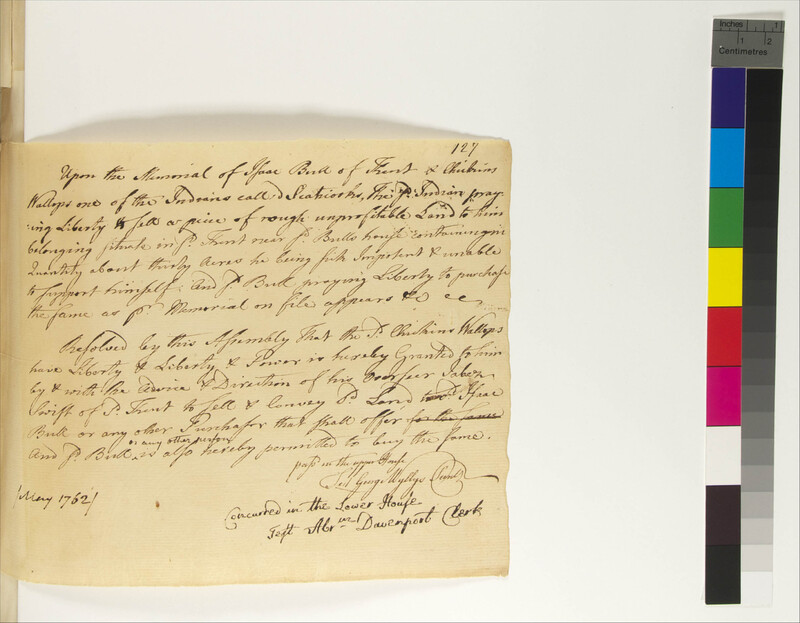 127
Upon the Memorial of Isaac Bull of Kent & Chickins
Wallops one of the Indians call'd Scaticooks, The sd. Indian pray
ing Liberty to sell a piece of rough unprofitable Land to him
belonging situate in sd. Kent near sd. Bulls house containing in
Quantity about thirty Acres he being sick Impotent & unable
to support himself: And sd. Bull praying Liberty to purchase
the same as pr. Memorial on file appears &c
Resolved by this Assembly That the sd. Chickins Wallops
have Liberty & Liberty & Power is hereby Granted to him
by & with the Advice & Direction of his Overseer Jabez
Swift of sd. Kent to sell & Convey sd. Land to sd. Isaac
Bull or any other Purchaser that shall offer for the same
And sd. Bull or any other person is also hereby permitted to buy the same.
pass'd in the upper House
Test George Wyllys Secret
[May 1762]
Concurred in the Lower House
Test Abrm Davenport Clerk
Inches 1
1 2
Centimetres